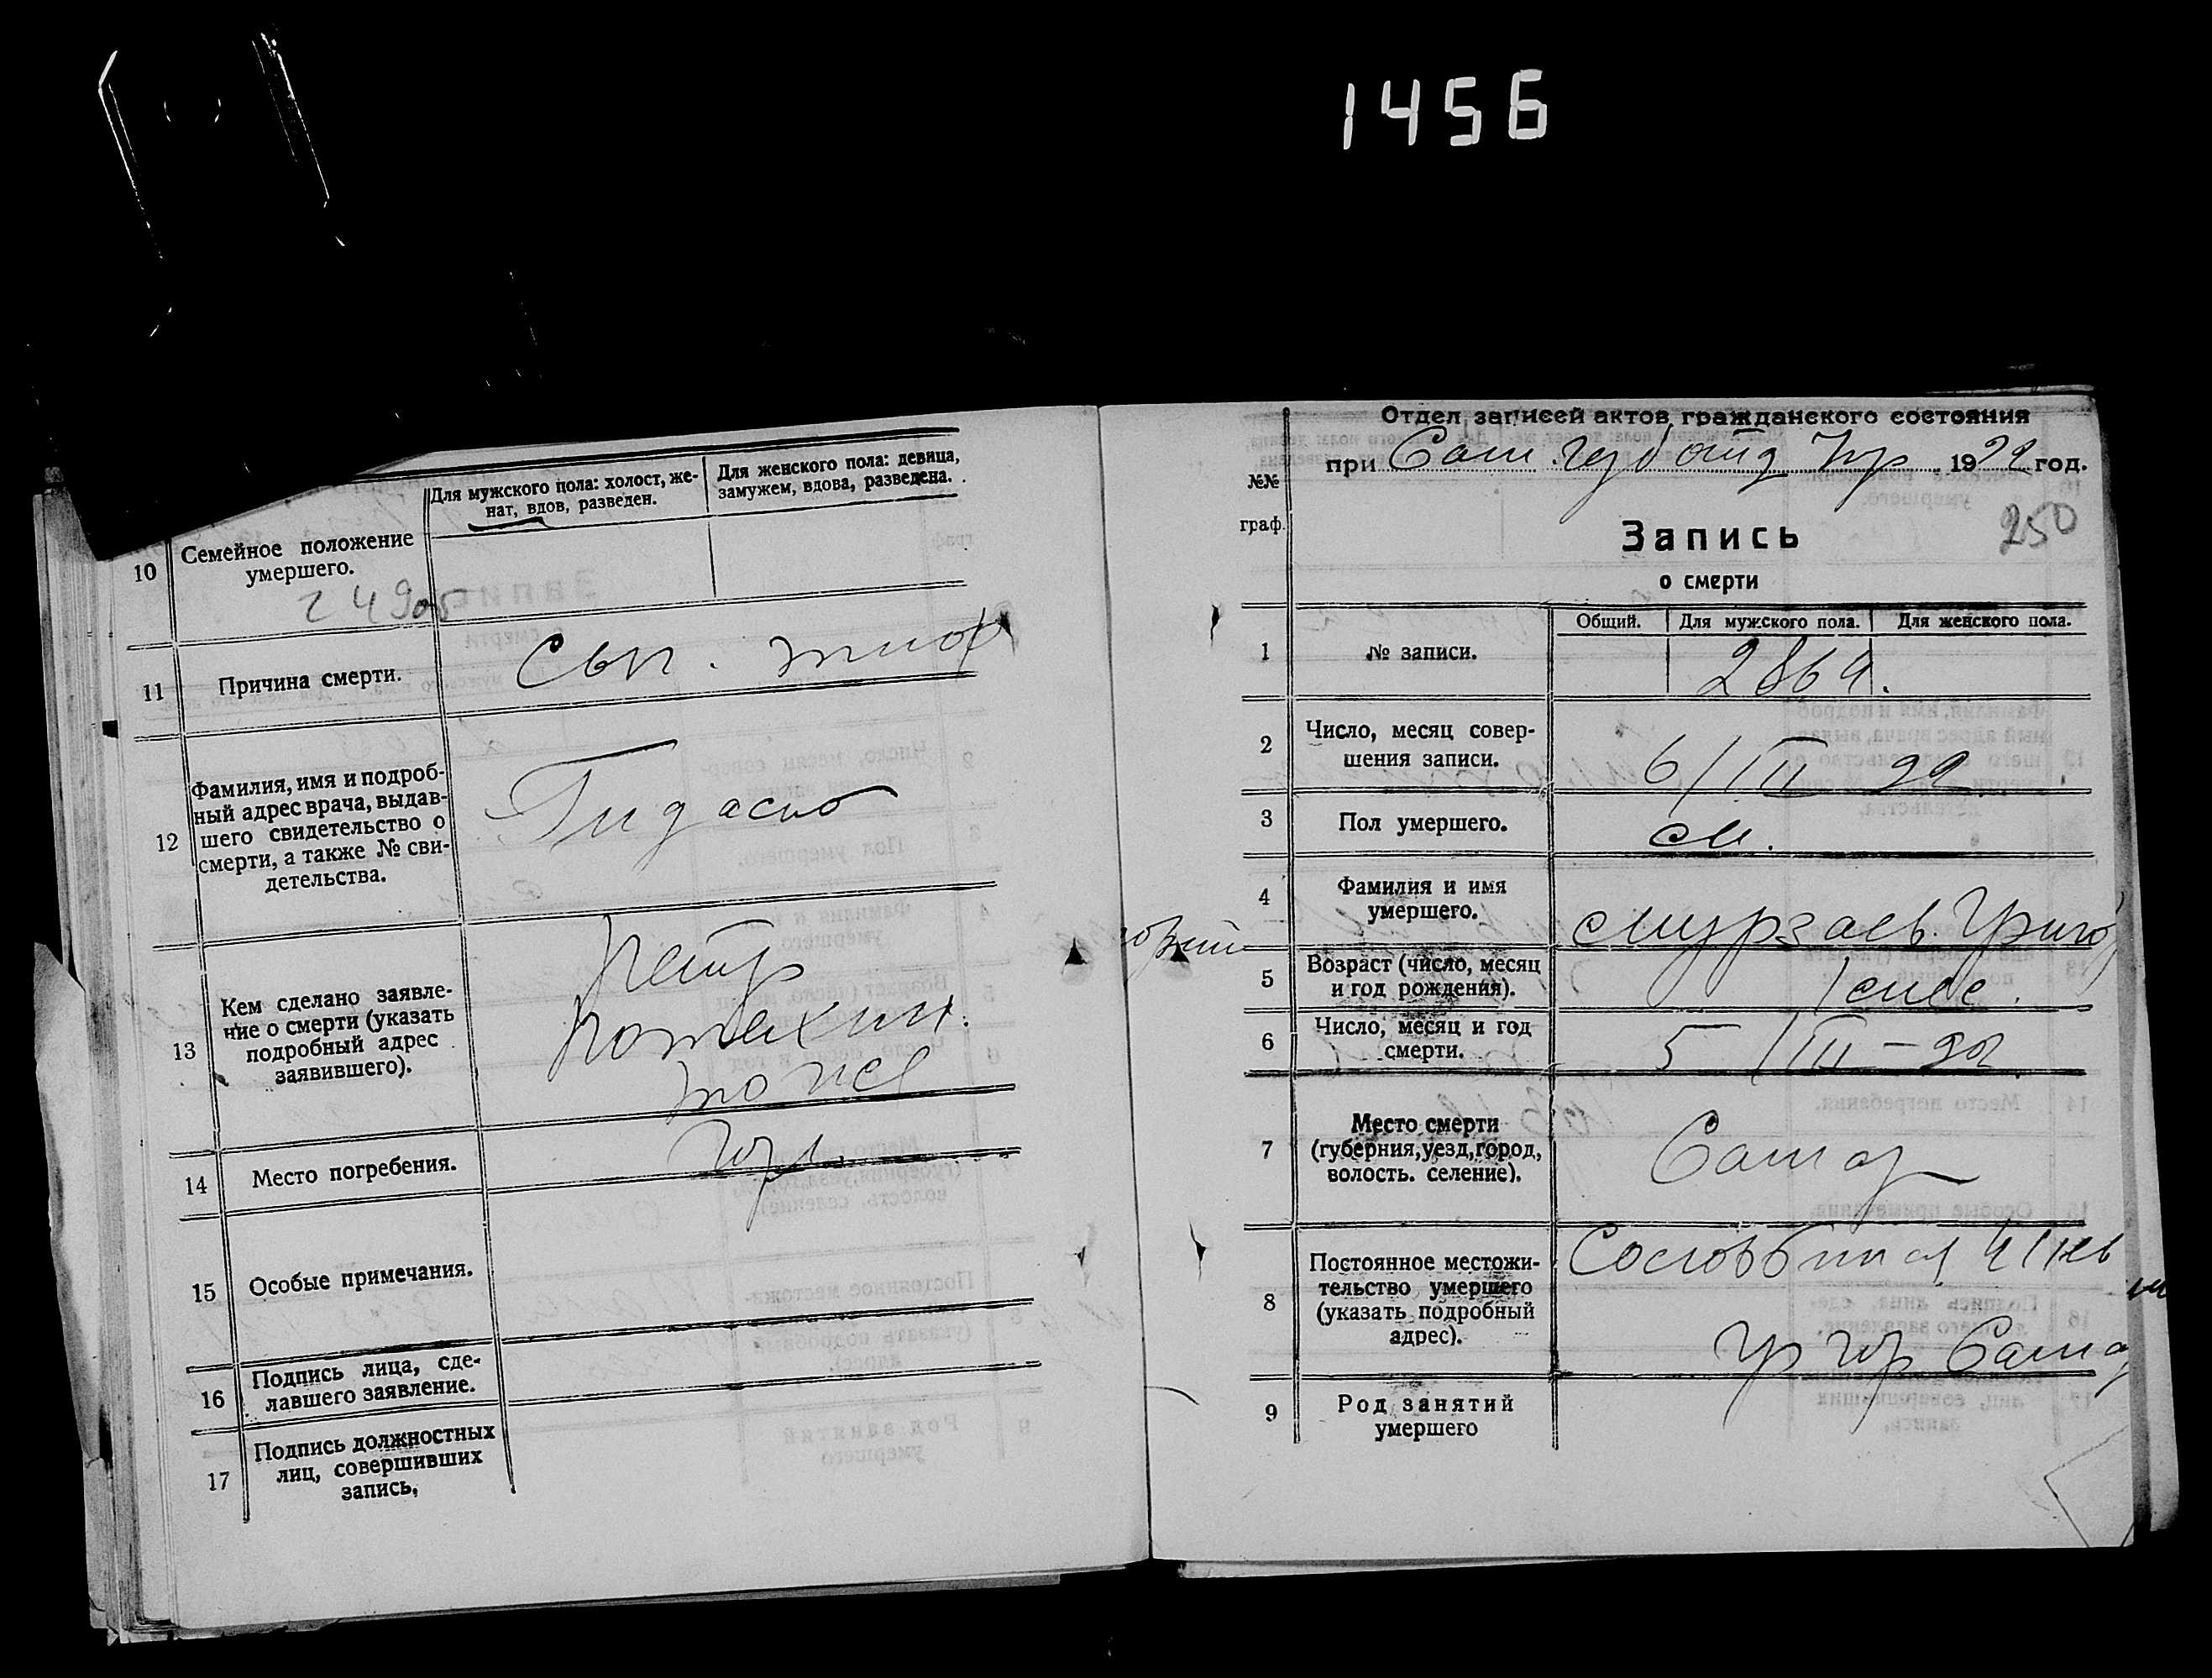 1456
Для мужского пола: холост, же-
нат, вдов, разведен.
Для женского пола: девица,
замужем, вдова, разведена.
10 Семейное положение
умершего.
249об
11 Причина смерти.
Сып. тиф
12 Фамилия, имя и подроб-
ный адрес врача, выдав-
шего свидетельство о
смерти, а также № сви-
детельства.
13 Кем сделано заявле-
ние о смерти (указать
подробный адрес
заявившего).
Петр
Потехин.
14 Место погребения.
15 Особые примечания.
16 Подпись лица, сде-
лавшего заявление.
17 Подпись должностных
лиц, совершивших
запись,
Отдел записей актов гражданского состояния
при Сам 1922 год.
№№
граф.
Запись
250
о смерти
Общий. Для мужского пола. Для женского пола.
1 № записи.
2864.
2 Число, месяц совер-
шения записи.
6/III 22.
3 Пол умершего.
м.
4 Фамилия и имя
умершего.
Мурзаев Григо
рий
5 Возраст (число, месяц
и год рождения).
1 мес.
6 Число, месяц и год
смерти.
5/III-22.
7 Место смерти
(губерния, уезд, город,
волость. селение).
Самар
8 Постоянное местожи-
тельство умершего
(указать подробный
адрес).
гор Самар
9 Род занятий
умершего